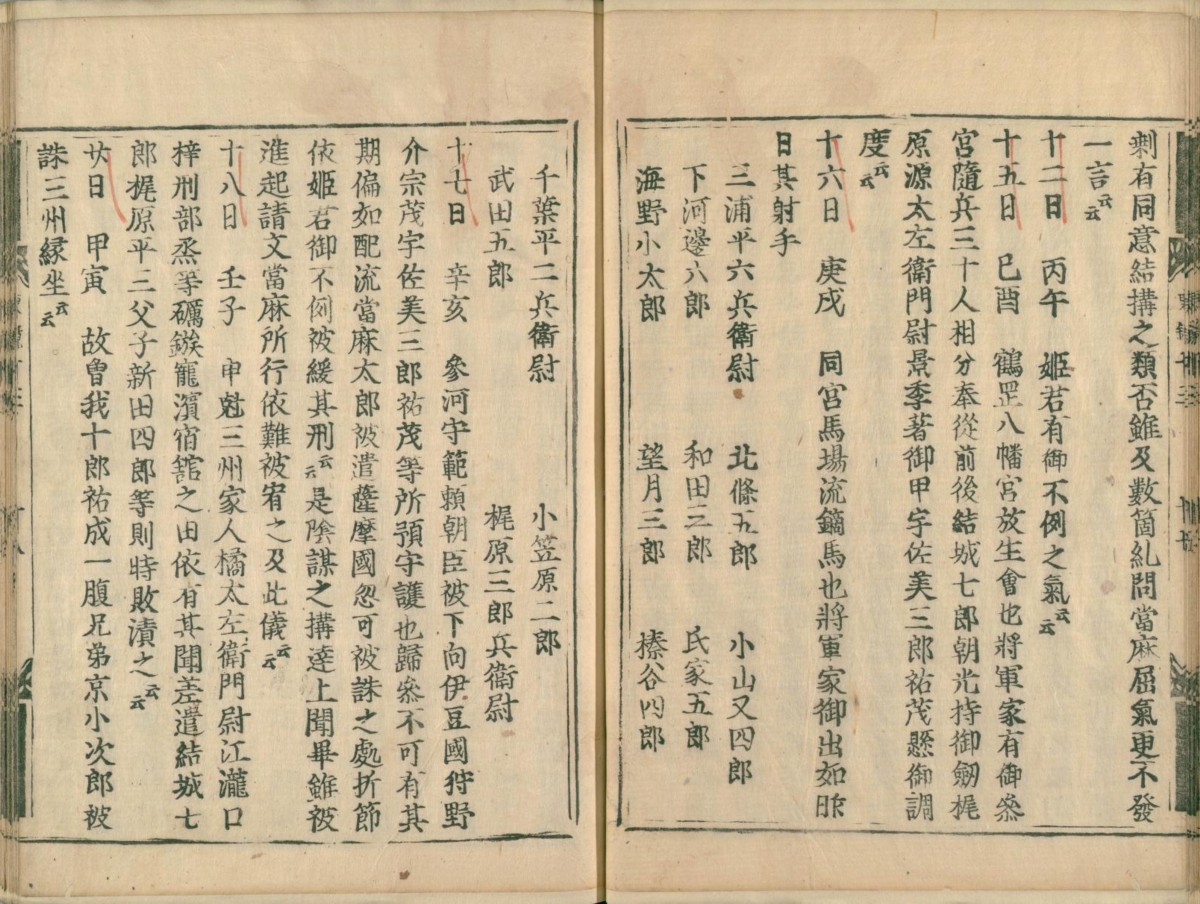 剰有同意結搆之類否雖及數箇糺問當麻屈氣更不發
一言云云
十二日　丙午　姫君有御不例之氣云云
十五日　己酉　鶴罡八幡宮放生會也將軍家有御叅
宮隨兵三十人相分奉從前後結城七郎朝光持御劔梶
原源太左衛門尉景季著御甲宇佐美三郎祐茂懸御調
度云云
十六日　庚戌　同宮馬場流鏑馬也將軍家御出如昨
日其射手
三浦平六兵衛尉　北條五郎　小山又四郎
下河邊八郎　和田三郎　氏家五郎
海野小太郎　望月三郎　榛谷四郎
千葉平二兵衛尉　小笠原二郎
武田五郎　梶原三郎兵衛尉
十七日　辛亥　參河守範頼朝臣被下向伊豆國狩野
介宗茂宇佐美三郎祐茂等所預守護也歸叅不可有其
期偏如配流當麻太郎被遣薩摩國忽可被誅之處折節
依姫君御不例被緩其刑云云是陰謀之搆達上聞畢雖被
進起請文當麻所行依難被宥之及此儀云云
十八日　壬子　申尅三州家人橘太左衛門尉江瀧口
梓刑部烝等礪鏃寵濱宿舘之由依有其聞差遣結城七
郎梶原平三父子新田四郎等則時敗漬之云云
廿日　甲寅　故曽我十郎祐成一腹兄弟京小次郎被
誅三州縁坐云云